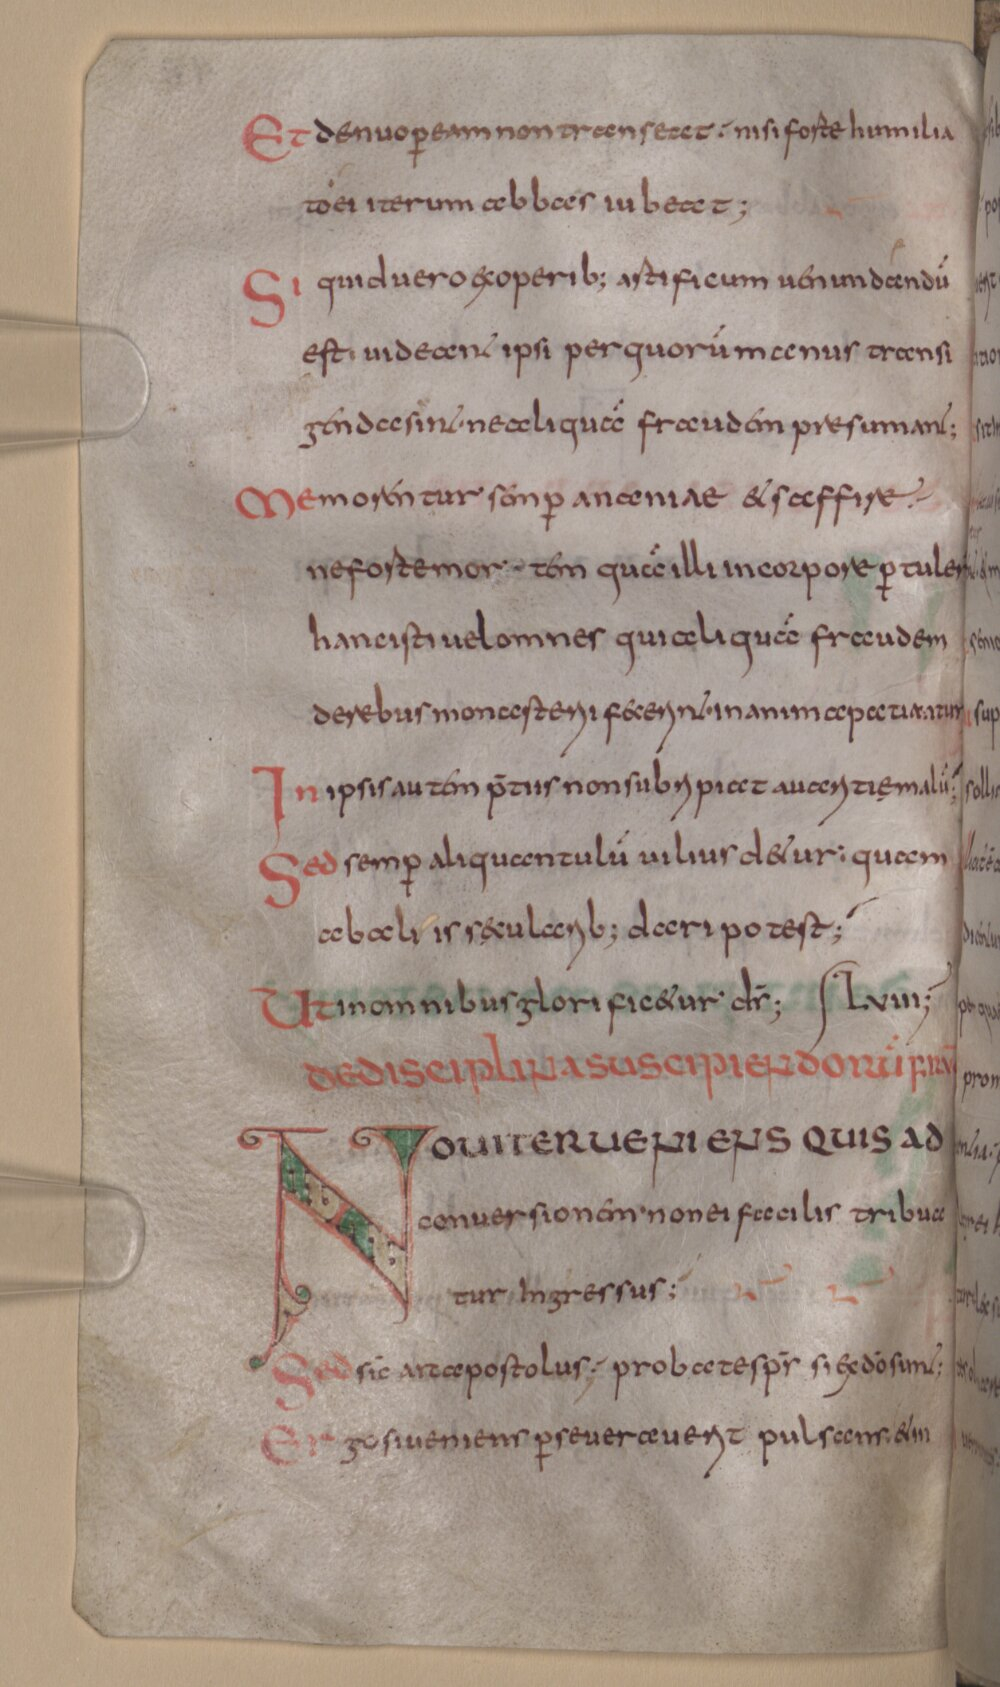 Et denuo p̄ eam non transeat · nisi forte humilia
to ei iterum abbas iubeat;
Si quid uero ex operib; artificum uenundandū
est · uideant ipsi per quorūm manus transi
genda sint · ne aliquā fraudem presumant;
Memorentur semp̄ ananiae & saffire ·
ne forte mortem quā illi in corpore p̄tuler
hanc isti uel omnes qui aliquā fraudem
de rebus monasterii fecerint · in anima patiantur
In ipsis autem p̄tiis non subripiat auaritię malū;
Sed semp̄ aliquantulū uilius detur · quam
ab aliis secularib; dari potest;
Ut in omnibus glorificetur ds̄; LVIII;
DE DISCIPLINA SUSCIPIENDORŪ FRM̄
NOUITER UENIENS QUIS AD
conuersionem · non ei facilis tribua
tur ingressus;
Sed sic̄ ait apostolus · probate sp̄s si ex dō sunt;
Ergo si ueniens p̄seuerauerit pulsans · & in